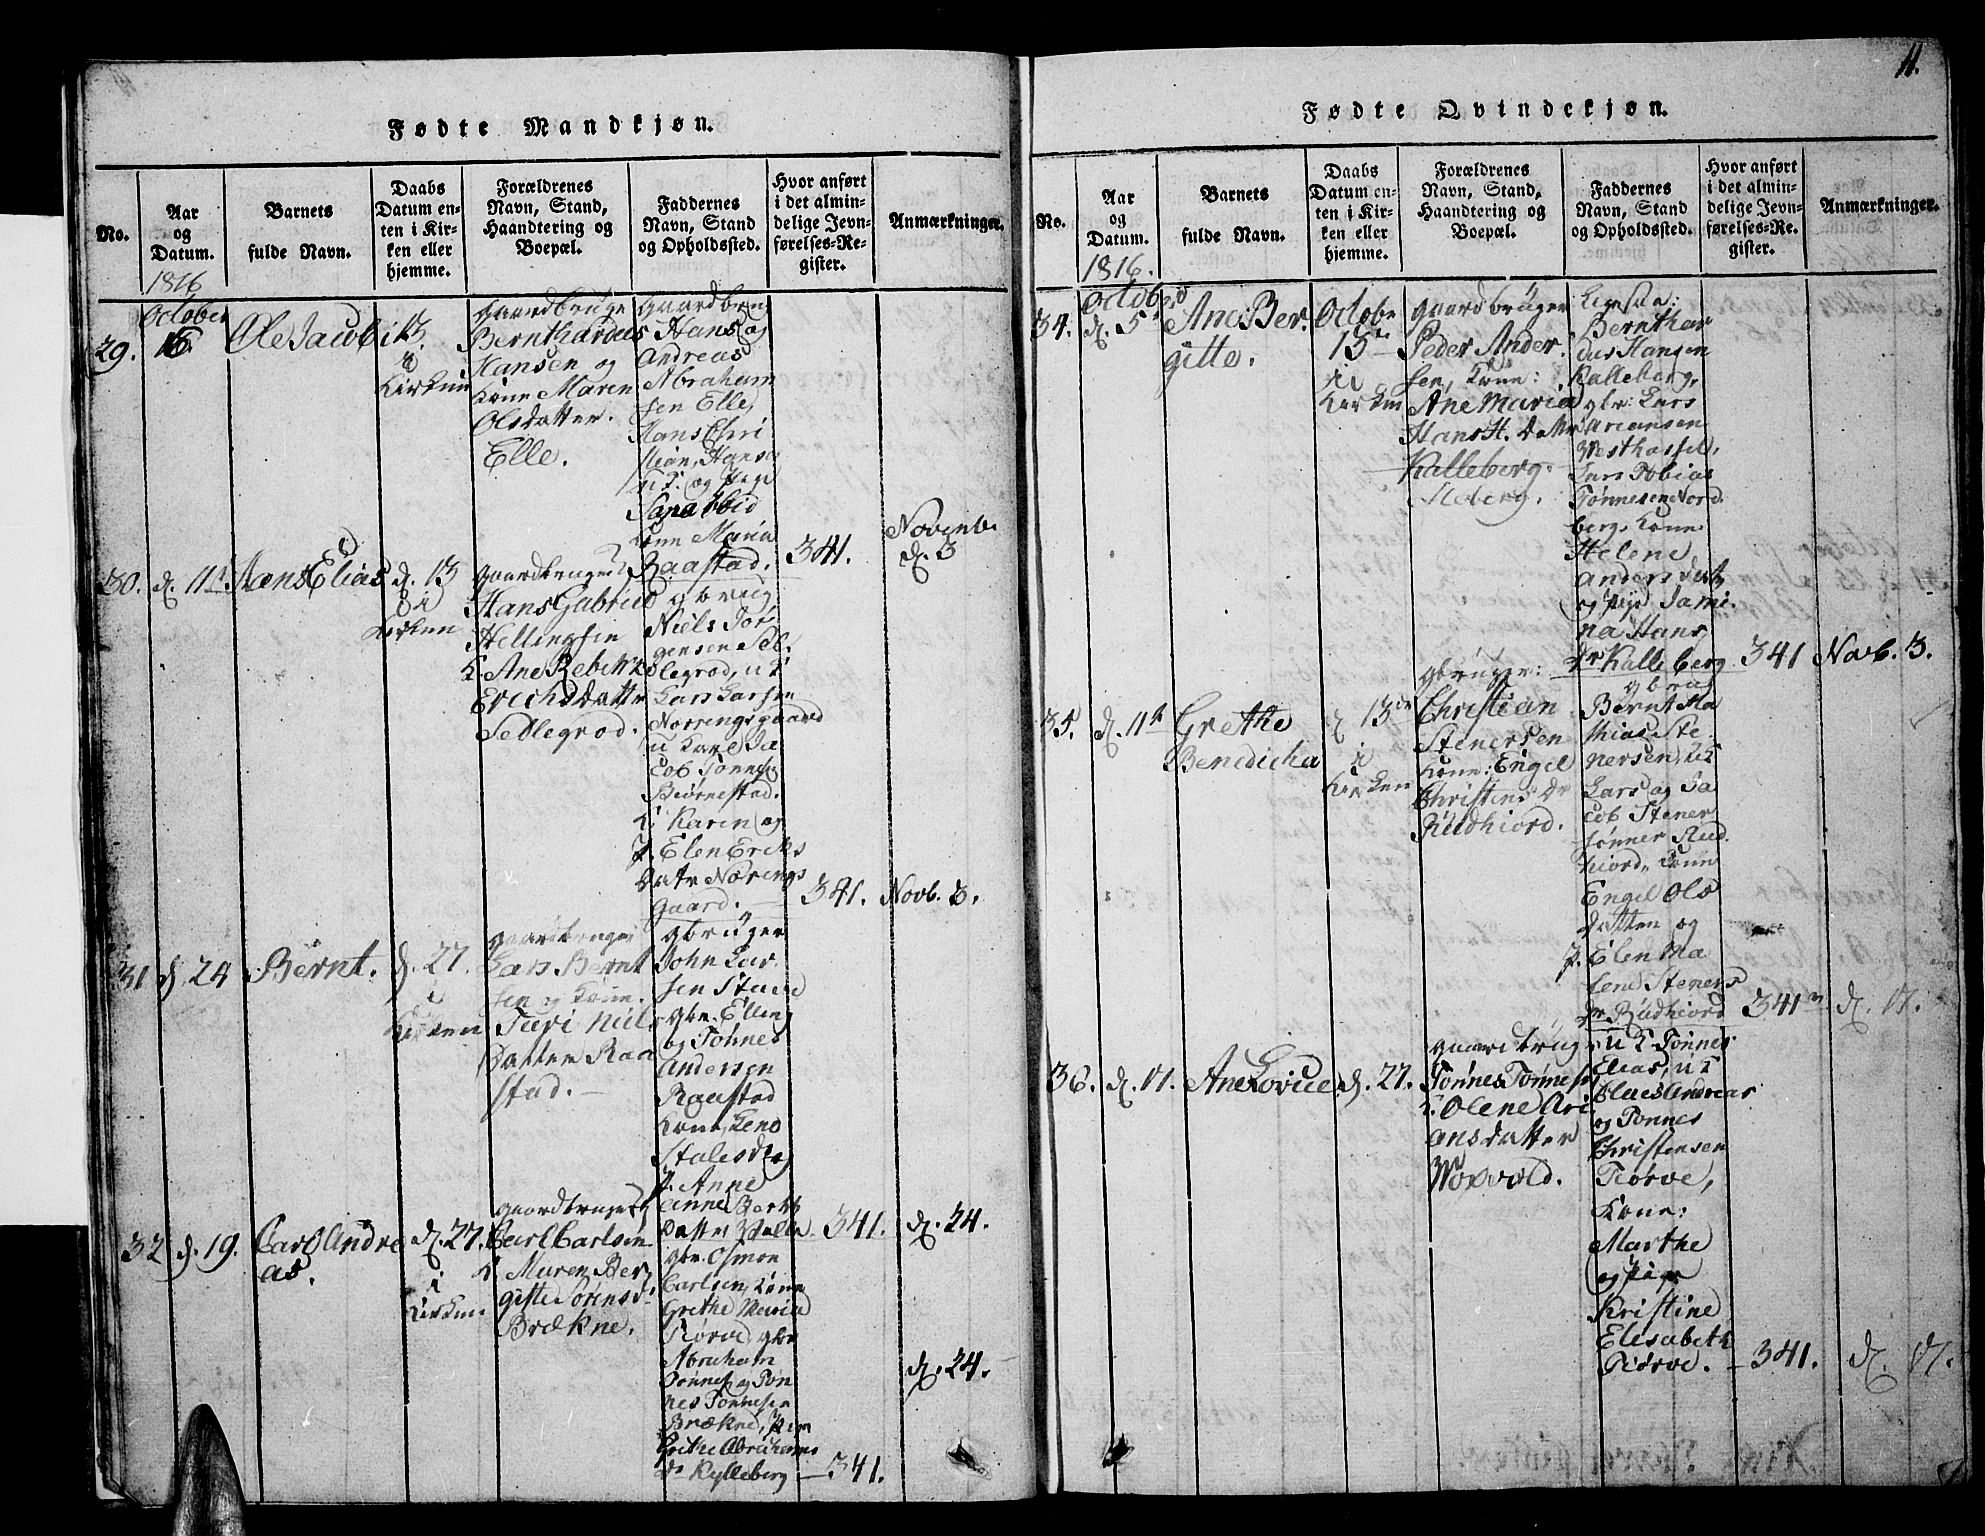 Fødte Mandkjøn.
No.
Aar
og
Datum.
Barnets
fulde Navn.
Daabs
Datum en-
ten i Kir-
ken eller
hjemme.
Forældrenes
Navn, Stand,
Haandtering og
Boepæl.
Faddernes
Navn, Stand
og Opholdssted.
Hvor anført
i det almin-
delige Jevn-
førelses-Re-
gister.
Anmærkninger.
1816
October
29.
16
Ole Jacob
13.
i
Kirken
gaardbruger
Bernthardus
Hansen og
Kone Maren
Olsdatter.
Elle.
gaardbru
Hans og
Andreas
Abraham
sen Elle,
Hans Chri
stian, Hans
og Pige
Kone Maria
Raastad.
341.
Novemb.
d. 3
30.
d. 11t
Hans Elias
d. 13
i
Kirken
gaardbruger
Hans Gabriel
Hellingsen
K. Ane Rebekka
Erichsdattr
Sedlegrod.
gbrug
Niels Jør
gensen Sel
legrod, u K
Lars Larsen
Nørringsgaard
u Karl Ja
cob Tønnes
Biørnestad.
K. Karen og
P. Elen Eriks
Datr Nørings
gaard.
341.
Novb. 3.
31
d. 24
Bernt.
d. 27.
i
Kirken
gaardbruger
Lars Bernt
sen og Kone
Turi Niels
Datter Raa
stad.
gbruger
John Lar
sen
gbr. Elling
og Tønnes
Andersen
Raastad
Kone, Lene
Stalesd
P. Anne
Anne Bernts
Datter
341.
d. 24.
32
d. 19.
Carl Andre
as.
d. 27.
i
Kirken.
gaardbruger
Carl Carlsen
K. Maren Ber
gitte Sørensd.
Brækne.
gbr. Osmon
Carlsen, Kone
Grethe Maria
Tiørve gbr
Abraham
Tønnes og Tøn
nes Tønnesen
Brækne, Pige
Grethe Abrahams
Dr Kylleberg
341.
d. 24.
11.
Fødte Qvindekjøn.
No.
Aar
og
Datum.
Barnets
fulde Navn.
Daabs
Datum en-
ten i Kir-
ken eller
hjemme.
Forældrenes
Navn, Stand,
Haandtering og
Boepæl.
Faddernes
Navn, Stand
og Opholdssted.
Hvor anført
i det almin-
delige Jevn-
førelses-Re-
gister.
Anmærkninger.
1816.
October
34.
d. 5t
Ane Ber.
gitte.
Octobe
13de
i
Kirken
gaardbruger
Peder Ander.
sen, Kone:
Ane Maria
Hans H. Datr
Kalleberg.
Bernthar
dus Hansen
Kalleberg,
gbr: Lars
Ariansen
Vesthassel,
Lars Tobias
Tønnesen Nord
berg, Kone
Helene
Andersdatr
og Pige Jami.
na Hans
Dr Kalleberg
341
Novb. 3.
35.
d. 11t
Grethe
Benedicka
d 13de
i
Kirken
gbruger:
Christian
Stenersen
Kone: Engel
Christens Dr
Rudhiord.
gbrug
Bernt Ma
thias Ste
nersen, u K
Lars og Ja
cob Stener
sønner Rud
hiord, Kone
Engel Ols
datter og
P. Elen Ma
lene Steners
Dr Rudhiord
341
d. 17.
36.
d. 17.
Ane Lovise
d. 27.
gaardbrug
Tønnes Tønnesen
K. Olene Ari
ansdatter
u K Tønnes
Elias, u K
Claes Andreas
og Tønnes
Christensen
Tiørve,
Kone:
Marthe
og Pige
Kristine
Elisabeth
Tiørve.
341.
d. 17.